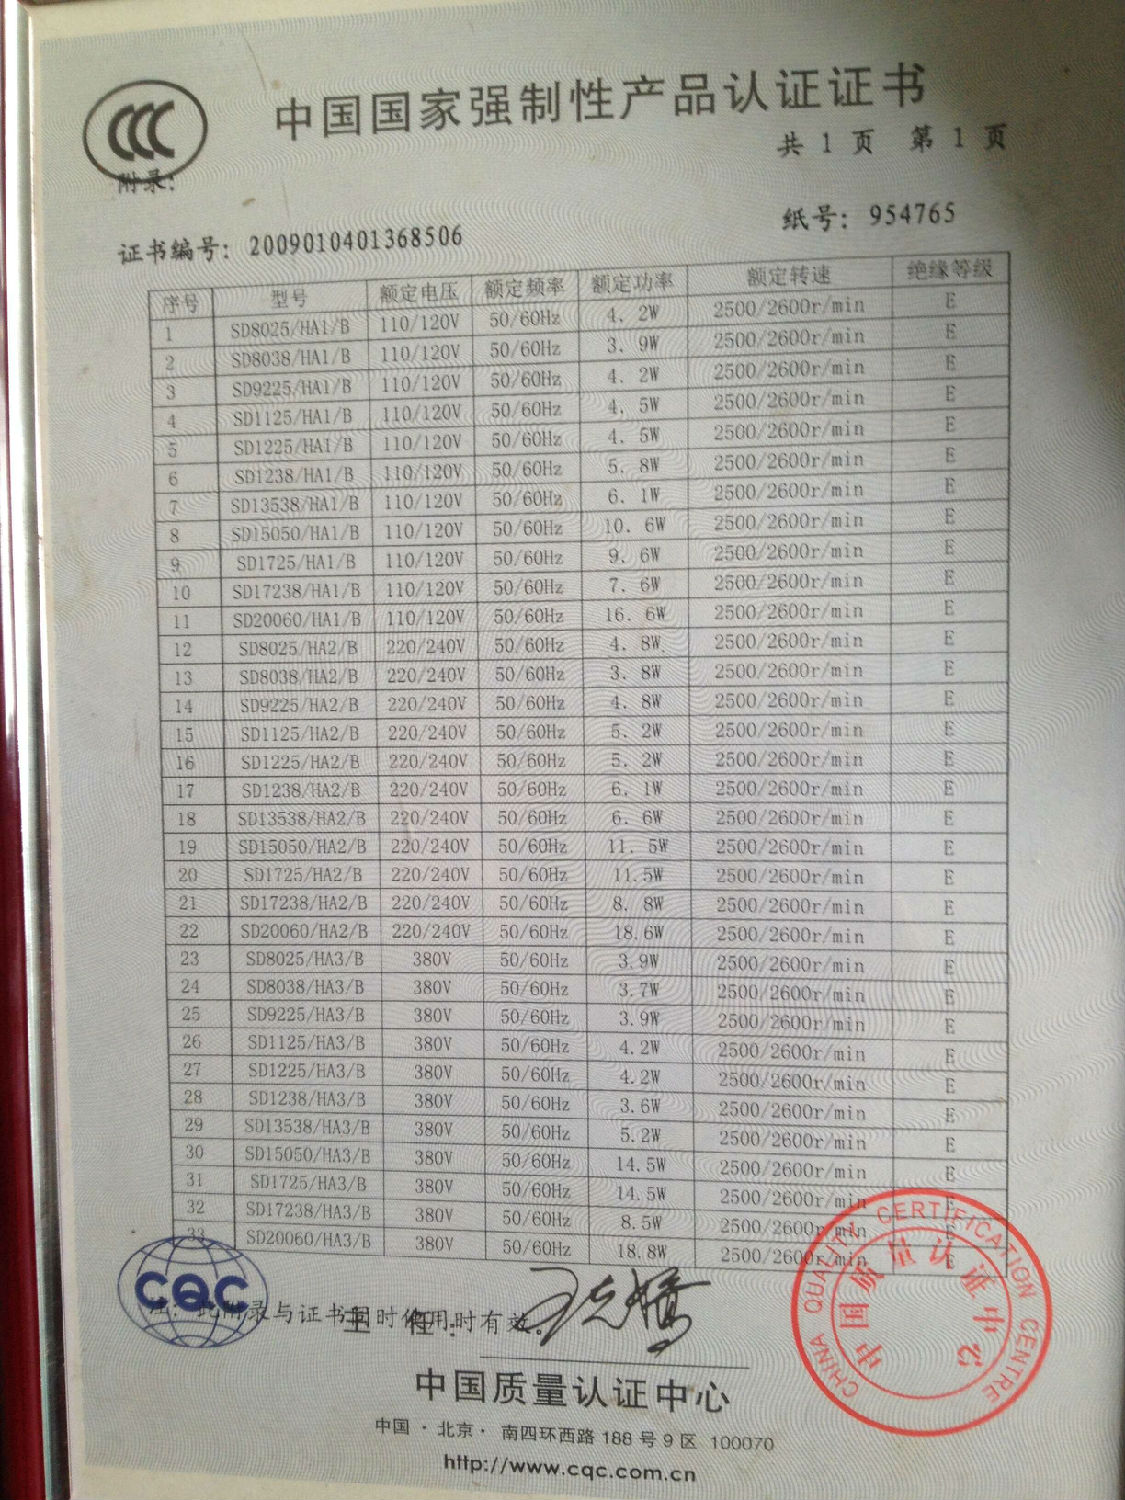 CCC
中国国家强制性产品认证证书
共 1 页 第 1 页
附录:
证书编号: 2009010401368506 纸号: 954765
序号 型号 额定电压 额定频率 额定功率 额定转速 绝缘等级
1 SD8025/HA1/B 110/120V 50/60Hz 4. 2W 2500/2600r/min E
2 SD8038/HA1/B 110/120V 50/60Hz 3. 9W 2500/2600r/min E
3 SD9225/HA1/B 110/120V 50/60Hz 4. 2W 2500/2600r/min E
4 SD1125/HA1/B 110/120V 50/60Hz 4. 5W 2500/2600r/min E
5 SD1225/HA1/B 110/120V 50/60Hz 4. 5W 2500/2600r/min E
6 SD1238/HA1/B 110/120V 50/60Hz 5. 8W 2500/2600r/min E
7 SD13538/HA1/B 110/120V 50/60Hz 6. 1W 2500/2600r/min E
8 SD15050/HA1/B 110/120V 50/60Hz 10. 6W 2500/2600r/min E
9 SD1725/HA1/B 110/120V 50/60Hz 9. 6W 2500/2600r/min E
10 SD17238/HA1/B 110/120V 50/60Hz 7. 6W 2500/2600r/min E
11 SD20060/HA1/B 110/120V 50/60Hz 16. 6W 2500/2600r/min E
12 SD8025/HA2/B 220/240V 50/60Hz 4. 8W 2500/2600r/min E
13 SD8038/HA2/B 220/240V 50/60Hz 3. 8W 2500/2600r/min E
14 SD9225/HA2/B 220/240V 50/60Hz 4. 8W 2500/2600r/min E
15 SD1125/HA2/B 220/240V 50/60Hz 5. 2W 2500/2600r/min E
16 SD1225/HA2/B 220/240V 50/60Hz 5. 2W 2500/2600r/min E
17 SD1238/HA2/B 220/240V 50/60Hz 6. 1W 2500/2600r/min E
18 SD13538/HA2/B 220/240V 50/60Hz 6. 6W 2500/2600r/min E
19 SD15050/HA2/B 220/240V 50/60Hz 11. 5W 2500/2600r/min E
20 SD1725/HA2/B 220/240V 50/60Hz 11.5W 2500/2600r/min E
21 SD17238/HA2/B 220/240V 50/60Hz 8. 8W 2500/2600r/min E
22 SD20060/HA2/B 220/240V 50/60Hz 18.6W 2500/2600r/min E
23 SD8025/HA3/B 380V 50/60Hz 3.9W 2500/2600r/min E
24 SD8038/HA3/B 380V 50/60Hz 3.7W 2500/2600r/min E
25 SD9225/HA3/B 380V 50/60Hz 3.9W 2500/2600r/min E
26 SD1125/HA3/B 380V 50/60Hz 4.2W 2500/2600r/min E
27 SD1225/HA3/B 380V 50/60Hz 4.2W 2500/2600r/min E
28 SD1238/HA3/B 380V 50/60Hz 3.6W 2500/2600r/min E
29 SD13538/HA3/B 380V 50/60Hz 5.2W 2500/2600r/min E
30 SD15050/HA3/B 380V 50/60Hz 14.5W 2500/2600r/min E
31 SD1725/HA3/B 380V 50/60Hz 14.5W 2500/2600r/min E
32 SD17238/HA3/B 380V 50/60Hz 8.5W 2500/2600r/min E
33 SD20060/HA3/B 380V 50/60Hz 18.8W 2500/2600r/min E
CQC
注: 此附录与证书同时使用时有效.
主 任:
CHINA QUALITY CERTIFICATION CENTRE
中国质量认证中心
中国质量认证中心
中国 · 北京 · 南四环西路 188 号 9 区 100070
http://www.cqc.com.cn